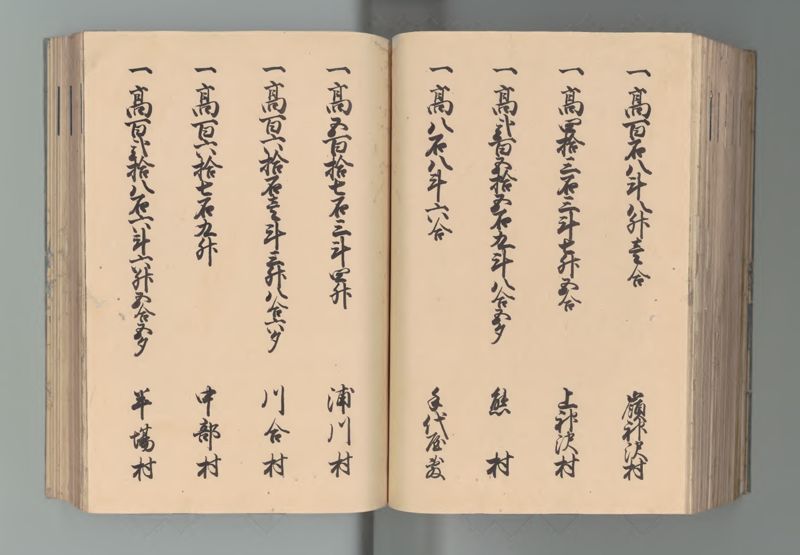 一高百石八斗八升壱合 嶺神沢村
一高四拾三石三斗七升五合 上神沢村
一高弐百五拾五石九斗八合五夕 熊村
一高八石八斗六合 手代屋敷
一高五百拾七石三斗四升 浦川村
一高百六拾石壱斗三升八合六夕 川合村
一高百六拾七石九升 中部村
一高百弐拾八石六斗六升五合五夕 半場村